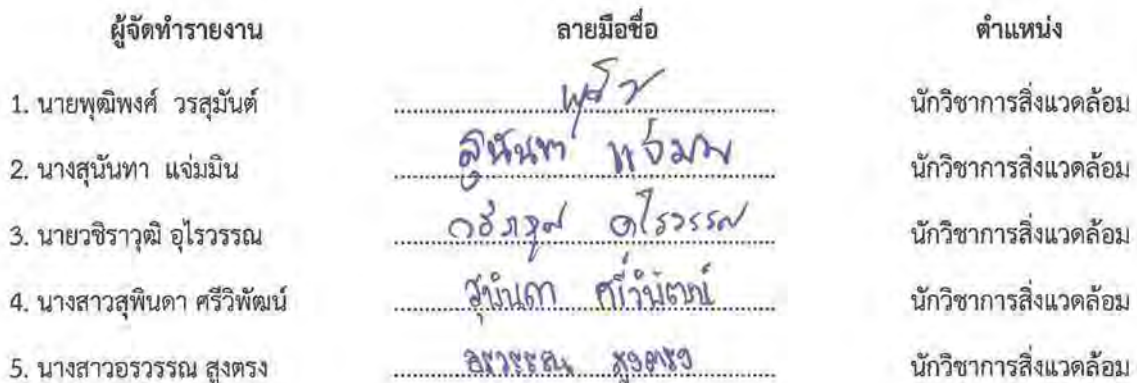 ผู้จัดทำรายงาน ลายมือชื่อ ตำแหน่ง
1. นายพุฒิพงศ์ วรสุมันต์ นักวิชาการสิ่งแวดล้อม
2. นางสุนันทา แจ่มมิน สุนันทา แจ่มมิน นักวิชาการสิ่งแวดล้อม
3. นายวชิราวุฒิ อุไรวรรณ อุไรวรรณ นักวิชาการสิ่งแวดล้อม
4. นางสาวสุพินดา ศรีวิพัฒน์ สุพินดา ศรีวิพัฒน์ นักวิชาการสิ่งแวดล้อม
5. นางสาวอรวรรณ สูงตรง อรวรรณ สูงตรง นักวิชาการสิ่งแวดล้อม